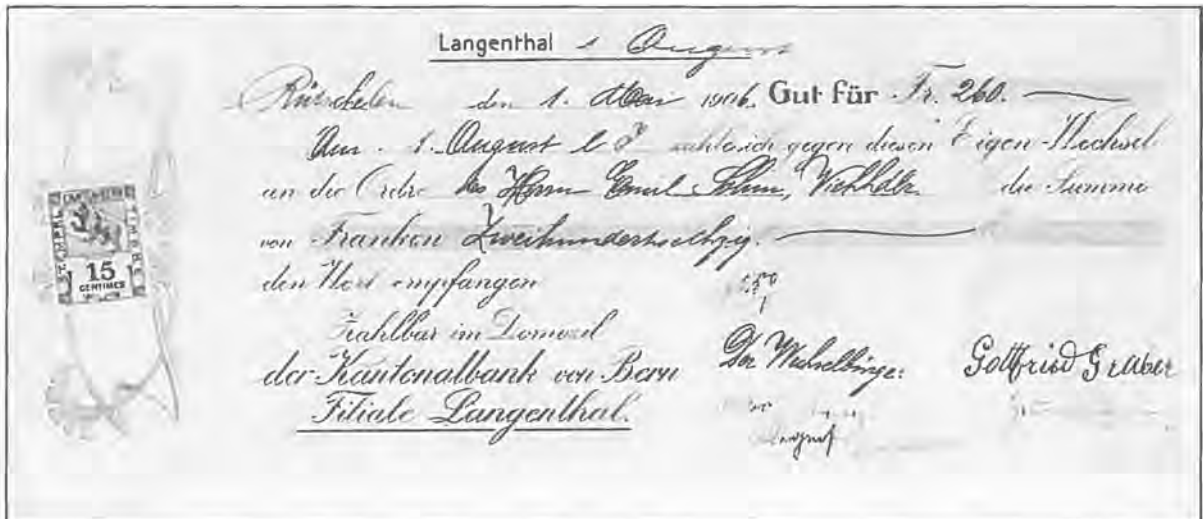 Langenthal 1 August
Rütschelen den 1. Mai 1906. Gut für Fr. 260.
Am 1. August l J zahle ich gegen diesen Eigen-Wechsel
an die Ordre des Herrn Emil Viehhdlr. die Summe
von Franken Zweihundertsechzig.
den Wert empfangen
Zahlbar im Domizil
der Kantonalbank von Bern
Filiale Langenthal.
STEMPEL
TIMBRE
15
CENTIMES
Der Wechselbürge:
Gottfried Graber